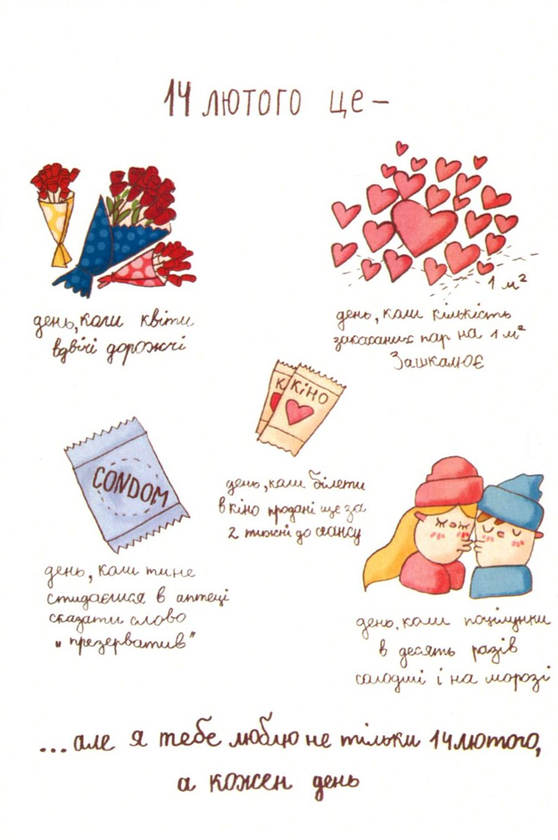 14 лютого це –
день, коли квіти
вдвічі дорожчі
1 м²
день, коли кількість
закоханих пар на 1 м²
зашкалює
КІНО
день, коли білети
в кіно продані ще за
2 тижні до сеансу
CONDOM
день, коли ти не
стидаєшся в аптеці
сказати слово
„презерватив”
день, коли поцілунки
в десять разів
солодші і на морозі
...але я тебе люблю не тільки 14 лютого,
а кожен день